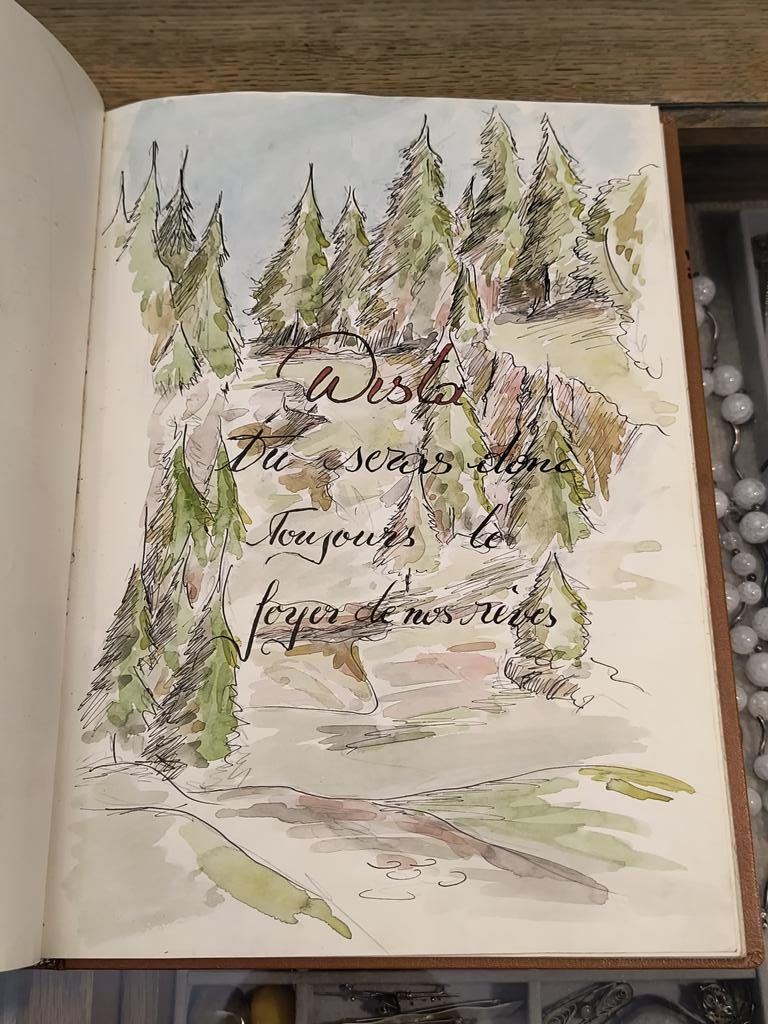 Wisła
Tu seras donc
Toujours le
foyer de nos rêves